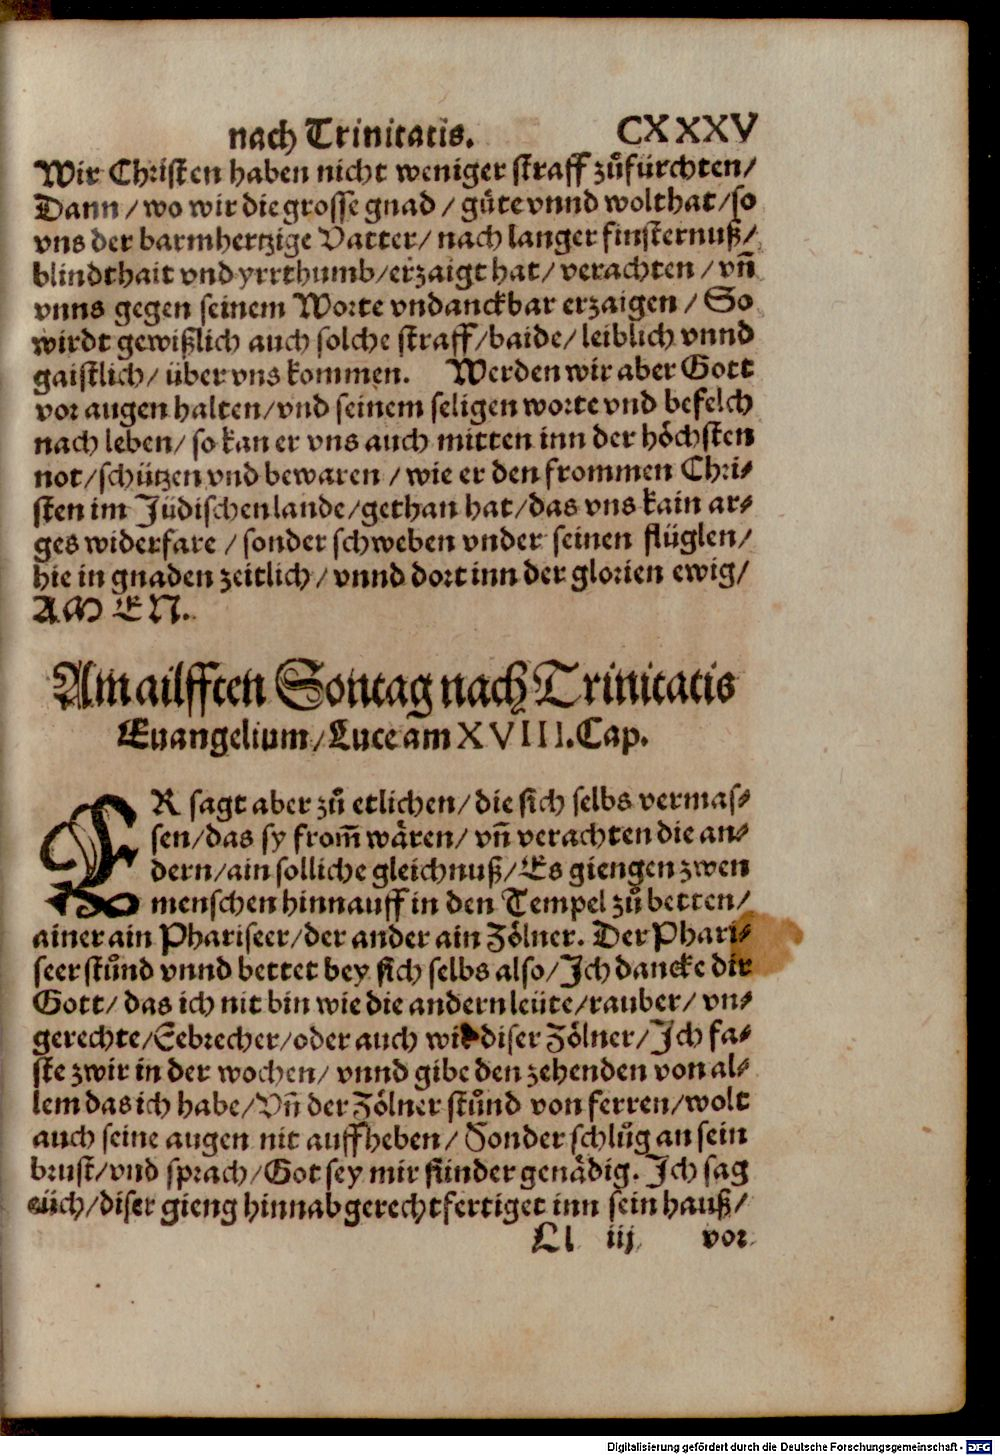 nach Trinitatis. CXXXV
Wir Christen haben nicht weniger straff zůfürchten/
Dann / wo wir die grosse gnad / gůte vnnd wolthat / so
vns der barmhertzige Vatter / nach langer finsternuß /
blindthait vnd yrrthumb / erzaigt hat / verachten / vñ
vnns gegen seinem Worte vndanckbar erzaigen / So
wirdt gewißlich auch solche straff / baide / leiblich vnnd
gaistlich / über vns kommen. Werden wir aber Gott
vor augen halten / vnd seinem seligen worte vnd befelch
nach leben / so kan er vns auch mitten inn der höchsten
not / schützen vnd bewaren / wie er den frommen Chri⸗
sten im Jüdischen lande / gethan hat / das vns kain ar⸗
ges widerfare / sonder schweben vnder seinen flüglen /
hie in gnaden zeitlich / vnnd dort inn der glorien ewig /
AMEN.
Am ailfften Sontag nach Trinitatis
Euangelium / Luce am XVIII. Cap.
ER sagt aber zů etlichen / die sich selbs vermas⸗
sen / das sy from̃ wären / vñ verachten die an⸗
dern / ain solliche gleichnuß / Es giengen zwen
menschen hinnauff in den Tempel zů betten /
ainer ain Phariseer / der ander ain Zölner. Der Phari⸗
seer stůnd vnnd bettet bey sich selbs also / Ich dancke dir
Gott / das ich nit bin wie die andern leüte / rauber / vn⸗
gerechte / Eebrecher / oder auch wie diser Zölner / Ich fa⸗
ste zwir in der wochen / vnnd gibe den zehenden von al⸗
lem das ich habe / Vñ der Zölner stůnd von ferren / wolt
auch seine augen nit auffheben / Sonder schlůg an sein
brust / vnd sprach / Got sey mir sünder genädig. Ich sag
eüch / diser gieng hinnab gerechtfertiget inn sein hauß /
Ll iij vor
Digitalisierung gefördert durch die Deutsche Forschungsgemeinschaft - DFG